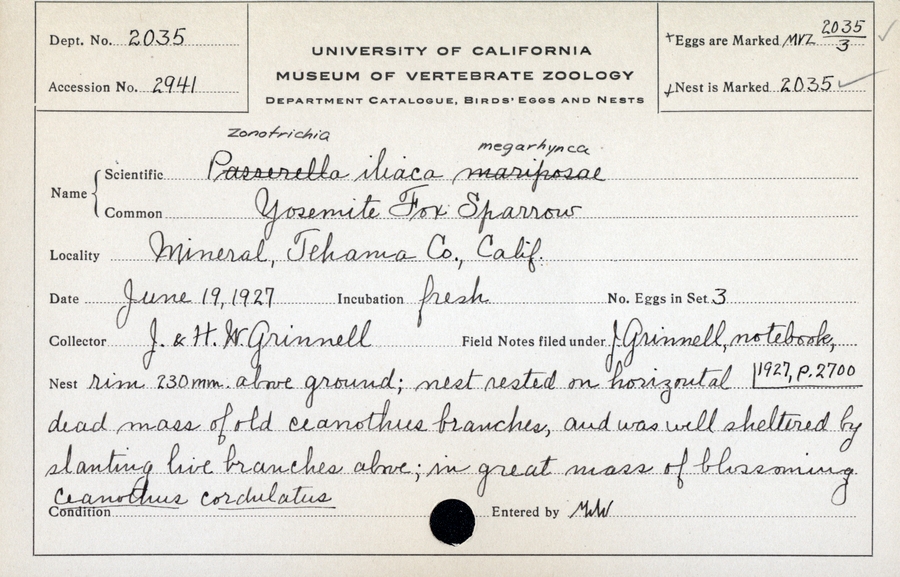 Dept. No. 2035
Accession No. 2941
UNIVERSITY OF CALIFORNIA
MUSEUM OF VERTEBRATE ZOOLOGY
DEPARTMENT CATALOGUE, BIRDS' EGGS AND NESTS
Eggs are Marked MVZ 2035/3 ✓
Nest is Marked 2035 ✓
Zonotrichia megarhynca
Name { Scientific Passerella iliaca mariposae
Common Yosemite Fox Sparrow
Locality Mineral, Tehama Co., Calif.
Date June 19, 1927 Incubation fresh No. Eggs in Set 3
Collector J. & H. W. Grinnell Field Notes filed under J. Grinnell, notebook,
1927, p. 2700
Nest rim 230 mm. above ground; nest rested on horizontal
dead mass of old ceanothus branches, and was well sheltered by
slanting live branches above; in great mass of blossoming
ceanothus cordulatus
Condition Entered by